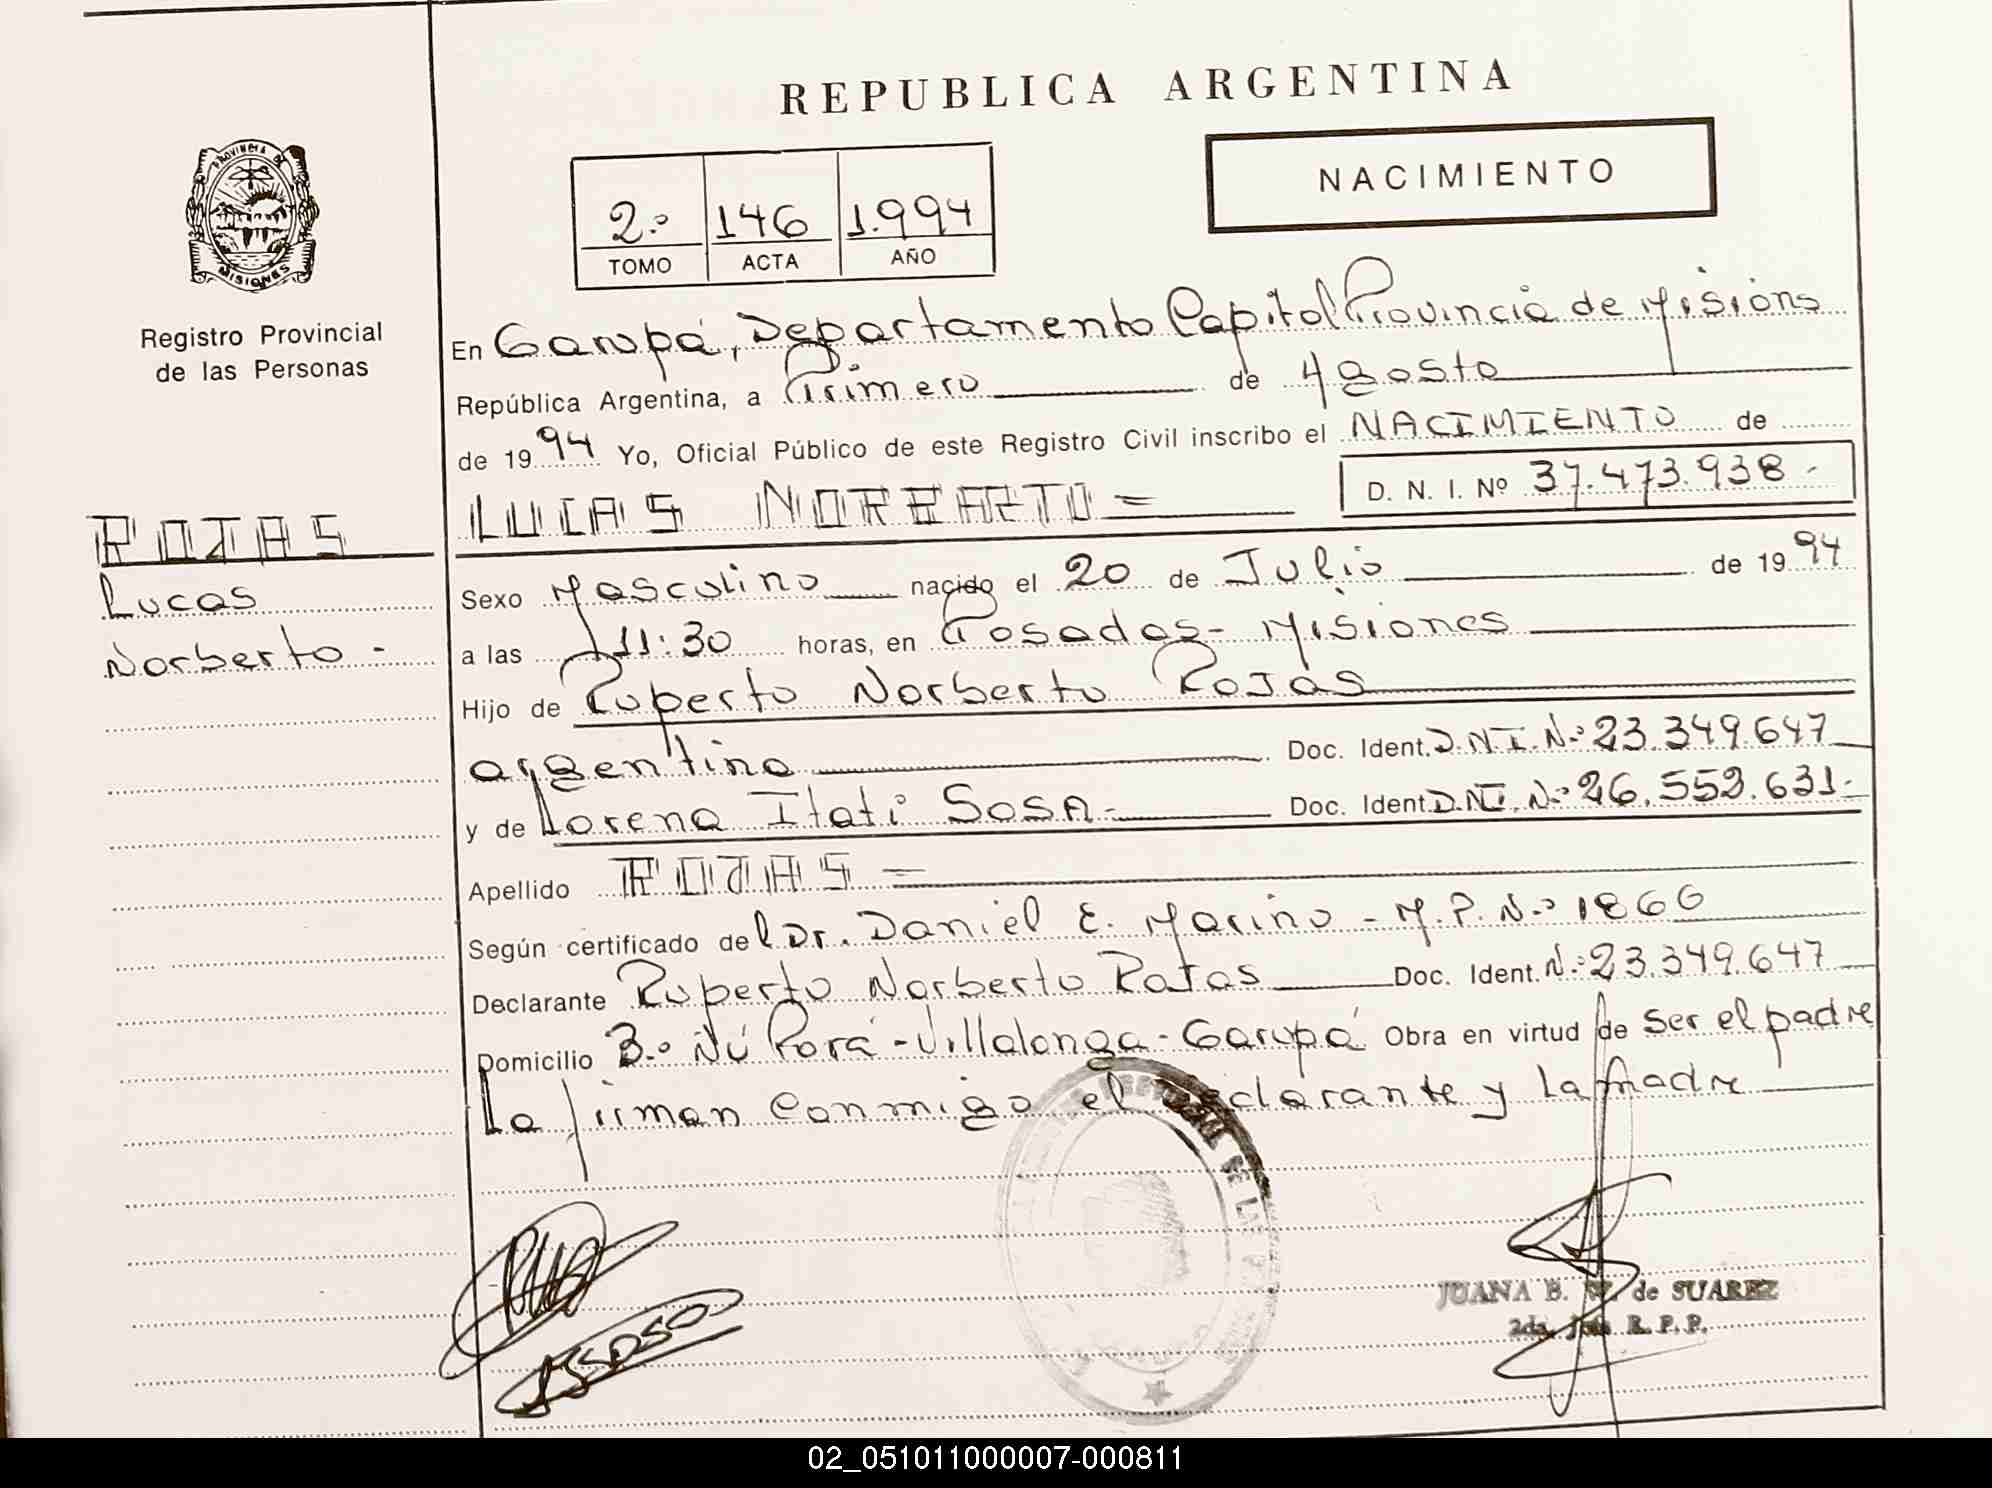 REPUBLICA ARGENTINA
PROVINCIA DE
MISIONES
Registro Provincial
de las Personas
2.º 146 1.994
TOMO ACTA AÑO
NACIMIENTO
En Garupá, Departamento Capital Provincia de Misiones
República Argentina, a Primero de Agosto
de 1994 Yo, Oficial Público de este Registro Civil inscribo el NACIMIENTO de
LUCAS NORBERTO =
D. N. I. Nº 37.473.938.-
ROJAS
Lucas
Norberto -
Sexo Masculino nacido el 20 de Julio de 1994
a las 11:30 horas, en Posadas - Misiones
Hijo de Ruperto Norberto Rojas
argentino Doc. Ident. D.N.I. N.º 23.349.647
y de Lorena Itati Sosa.- Doc. Ident. D.N.I. N.º 26.552.631.-
Apellido ROJAS =
Según certificado del Dr. Daniel E. Mariño - M.P. N.º 1866
Declarante Ruperto Norberto Rojas Doc. Ident. N.º 23.349.647
Domicilio B.º Ñú Porá - Villalonga - Garupá Obra en virtud de ser el padre
La firman conmigo el declarante y La madre
JUANA B. de SUAREZ
2da. Jefe R. P. P.
02_051011000007-000811